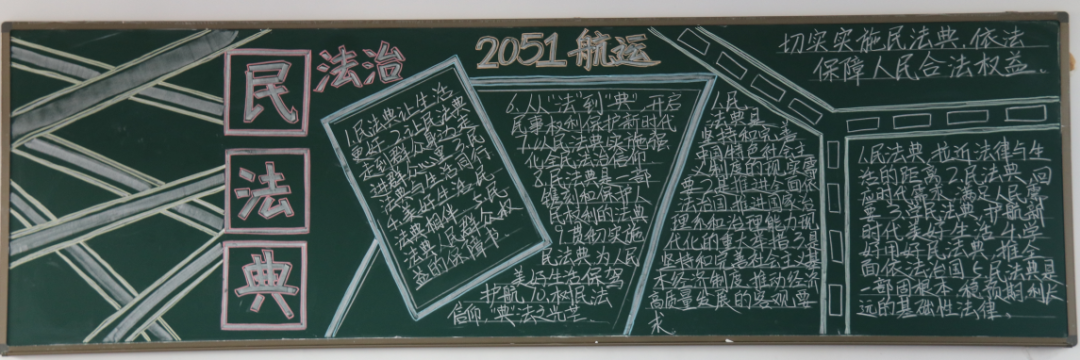 民
法
典
法治
2051航运
切实实施民法典、依法
保障人民合法权益、
1.民法典让生活
更好 2.让民法典
走到群众身边走
进群众心里 3.民
法典与生活同行
4.美好生活民
法典相伴 5.民
法典人民群众权
益的保障书
6.从“法”到“典”开启
民事权利保护新时代
7.以民法典实施强
化全民法治信仰
8.民法典是一部
镌刻和保护人
民权利的法典
9.贯彻实施
民法典为人民
美好生活保驾
护航 10.权民法
信仰，“典”法之光芒
1.民
法典是
坚持和完善
特色社会主
义制度的现实需
要 2.是推进全面依
法治国推进国家治
理体系和治理能力现
代化的重大举措 3.是
坚持和完善社会主义基
本经济制度、推动经济
高质量发展的客观要
求
1.民法典，拉近法律与生
活的距离 2.民法典，回
应时代需求，满足人民需
要 3.学民法典，护航新
时代美好生活 4.学
好用好民法典，推全
面依法治国 5.民法典是
一部固根本、稳预期、利长
远的基础性法律、